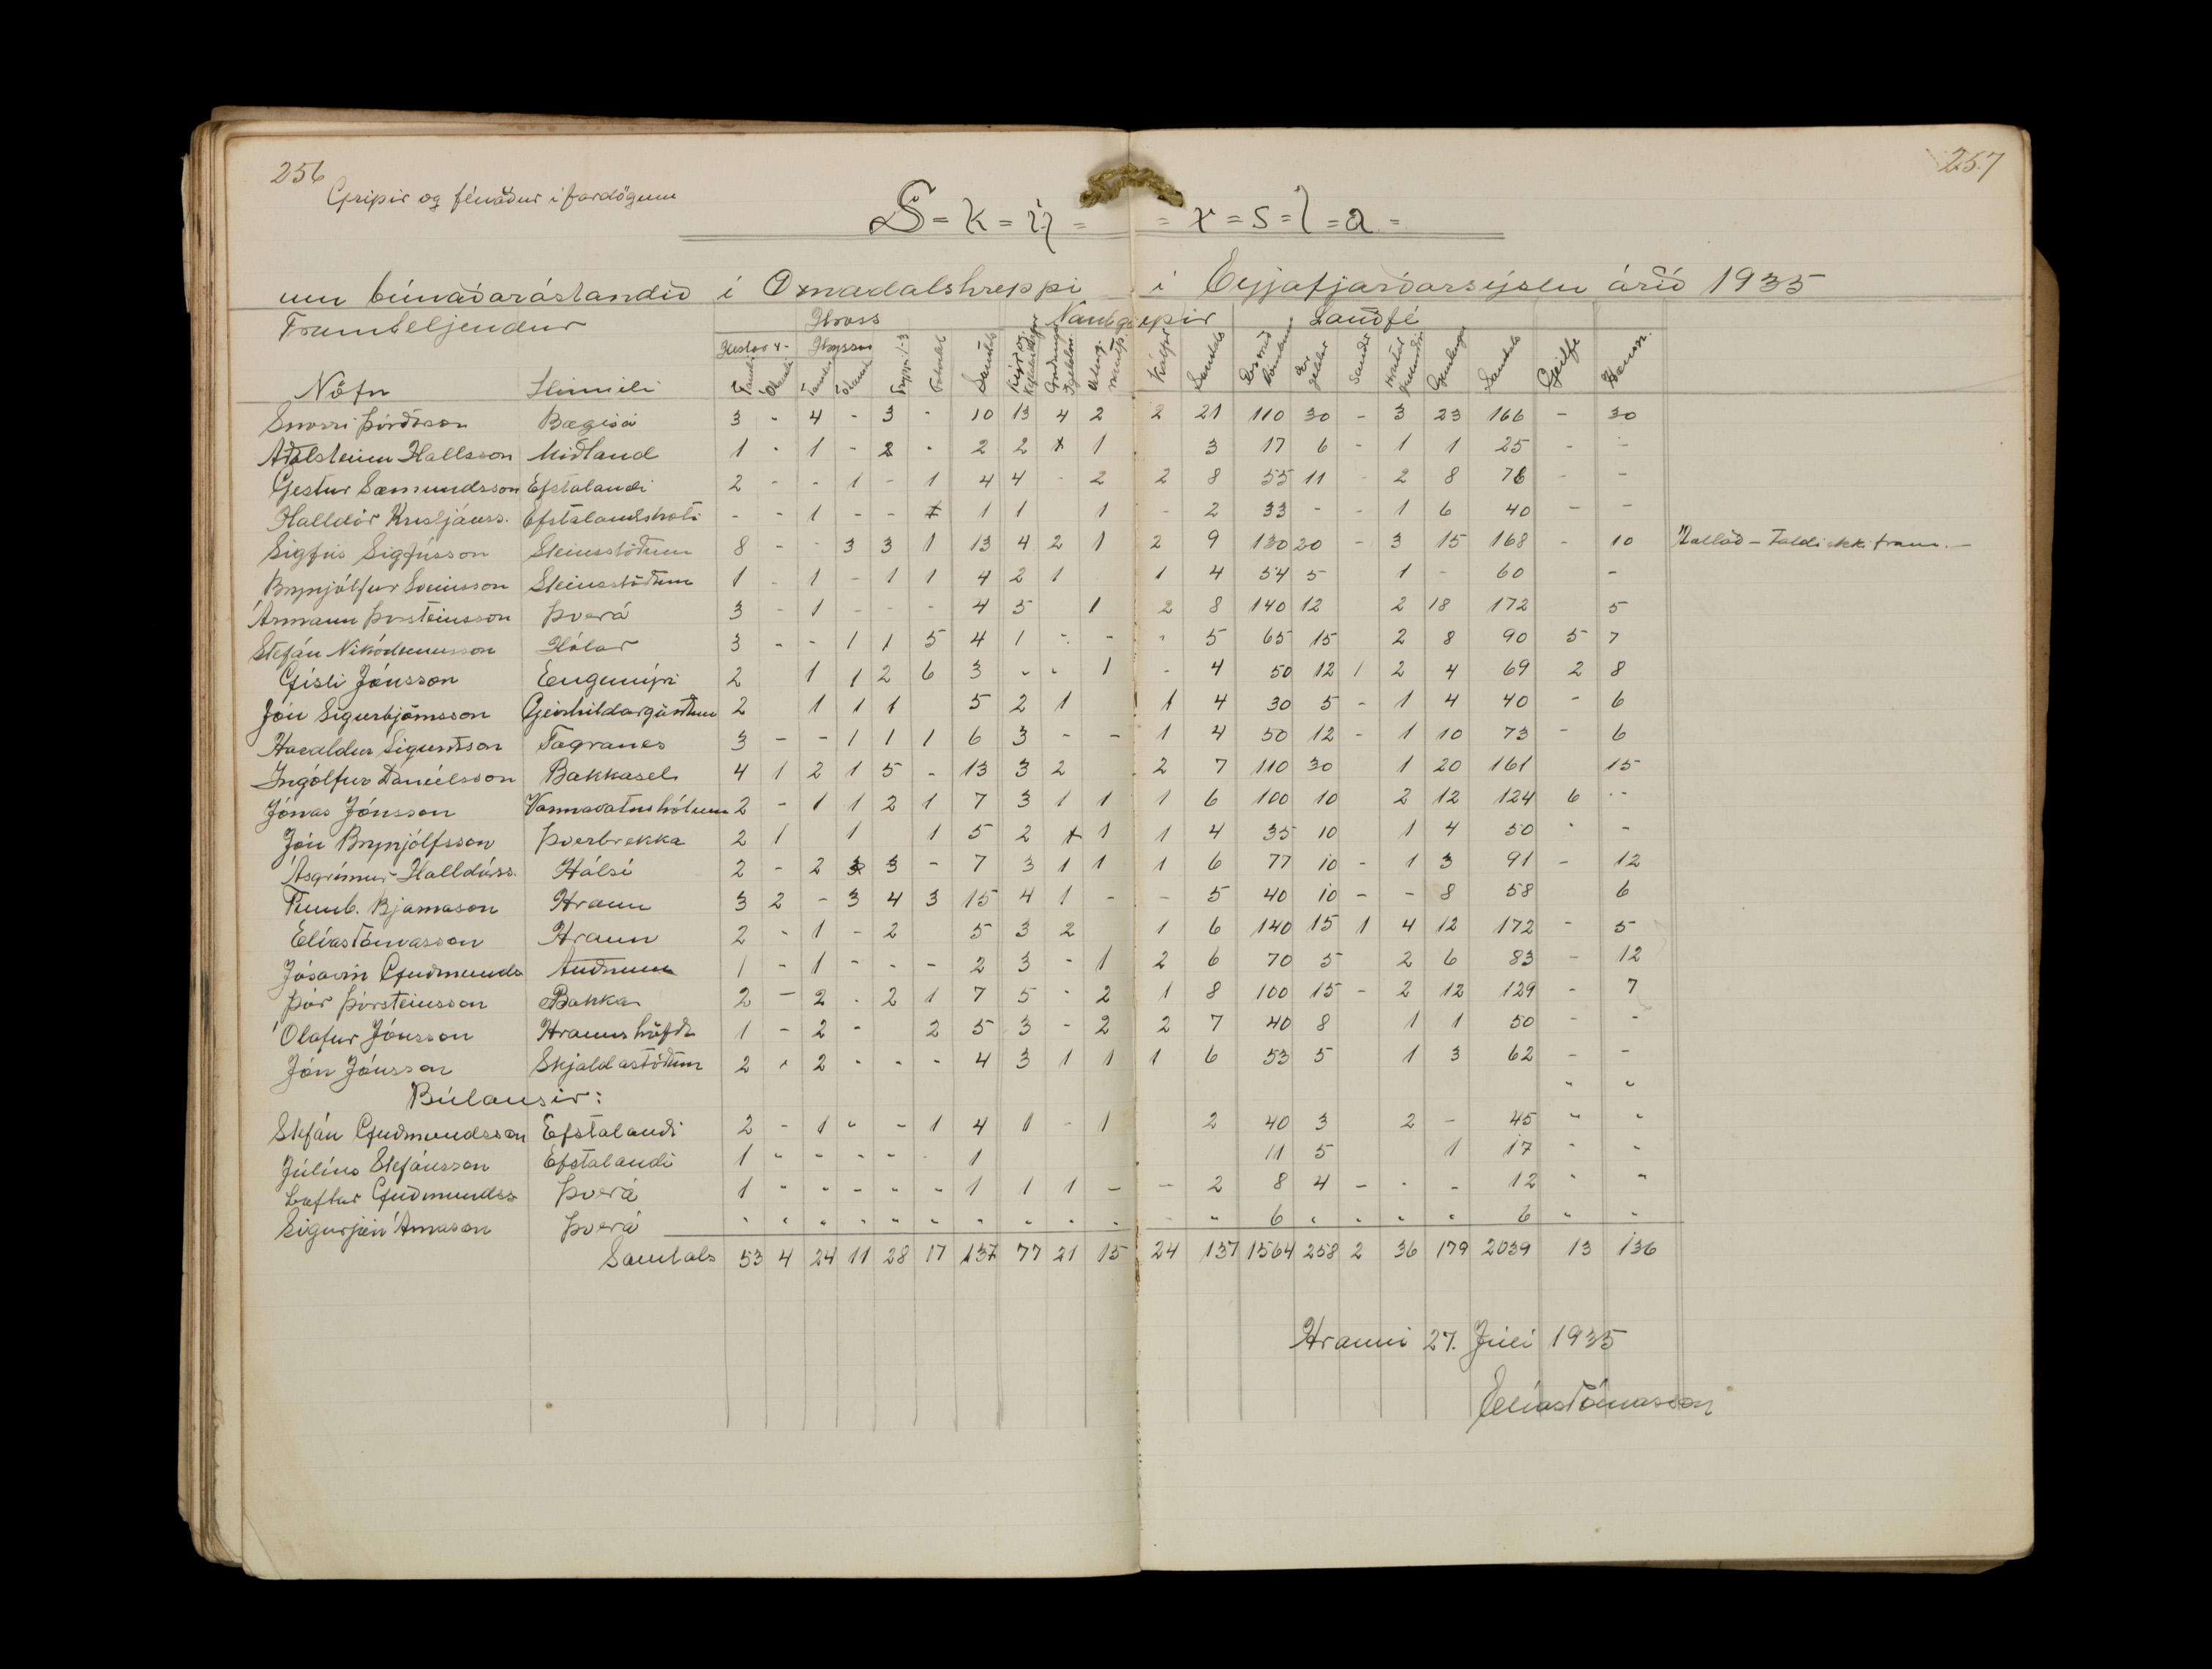 256
257
Gripir og fénaður í fardögum
S = k = ý = = r = s = l = a =
um búnaðarástandið í Öxnadalshreppi í Eyjafjarðarsýslu árið 1935
Framteljendur Hross Nautgripir Sauðfé
Hestar 4- Hryssur
Nöfn Heimili Tamdir Ótamdir Tamdar Ótamdar Tryppi 1-3 Folöld Samtals Kýr og Kelfdar kvígur Geldneyti Kálfar Samtals Ær með lömbum Ær geldar Sauðir Hrútar Gemlingar Samtals Geitfé Hænsn.
Snorri Þórðarson Bægisá 3 - 4 - 3 - 10 13 4 2 2 21 110 30 - 3 23 166 - 30
Aðalsteinn Hallsson Miðland 1 - 1 - 2 - 2 2 1 3 17 6 - 1 1 25 - -
Gestur Sæmundsson Efstalandi 2 - - 1 - 1 4 4 - 2 2 8 55 11 - 2 8 76 - -
Halldór Kristjánss. Efstalandskoti - - 1 - - 1 1 1 - 2 33 - - 1 6 40 - -
Sigfús Sigfússon Steinsstöðum 8 - - 3 3 1 13 4 2 1 2 9 130 20 - 3 15 168 - 10
Brynjólfur Sveinsson Steinsstöðum 1 - 1 - 1 1 4 2 1 1 4 54 5 1 - 60 -
Ármann Þorsteinsson Þverá 3 - 1 - - - 4 5 1 2 8 140 12 2 18 172 5
Stefán Nikódemusson Hólar 3 - - 1 1 5 4 1 - - - 5 65 15 2 8 90 5 7
Gísli Jónsson Engimýri 2 1 1 2 6 3 - - 1 - 4 50 12 1 2 4 69 2 8
Jón Sigurbjörnsson Geirhildargörðum 2 1 1 1 5 2 1 1 4 30 5 - 1 4 40 - 6
Haraldur Sigurðsson Fagranes 3 - - 1 1 1 6 3 - - 1 4 50 12 - 1 10 73 - 6
Ingólfur Daníelsson Bakkasel 4 1 2 1 5 - 13 3 2 2 7 110 30 1 20 161 15
Jónas Jónsson Varmavatnshólum 2 - 1 1 2 1 7 3 1 1 1 6 100 10 2 12 124 6 -
Jón Brynjólfsson Þverbrekka 2 1 1 1 5 2 1 1 4 35 10 1 4 50 - -
Ásgrímur Halldórss. Hálsi 2 - 2 3 - 7 3 1 1 1 6 77 10 - 1 3 91 - 12
Rumb. Bjarnason Hraun 3 2 - 3 4 3 15 4 1 - - 5 40 10 - - 8 58 6
Elías Tómasson Hraun 2 - 1 - 2 5 3 2 1 6 140 15 1 4 12 172 - 5
Jósavin Guðmunds Auðnum 1 - 1 - - - 2 3 - 1 2 6 70 5 2 6 83 - 12
Þór Þorsteinsson Bakka 2 - 2 - 2 1 7 5 - 2 1 8 100 15 - 2 12 129 - 7
Ólafur Jónsson Hraunshöfði 1 - 2 - 2 5 3 - 2 2 7 40 8 1 1 50 - -
Jón Jónsson Skjaldastöðum 2 - 2 - - - 4 3 1 1 1 6 53 5 1 3 62 - -
Búlausir: " "
Stefán Guðmundsson Efstalandi 2 - 1 " - 1 4 1 - 1 2 40 3 2 - 45 " "
Júlíus Stefánsson Efstalandi 1 " " " " 1 11 5 1 17 " "
Loftur Guðmundss Þverá 1 " " " " " 1 1 1 - - 2 8 4 - - - 12 " "
Sigurjón Árnason Þverá " " " " " " " " " " " " 6 " " " " 6 " "
Samtals 53 4 24 11 28 17 137 77 21 15 24 137 1564 258 2 36 179 2039 13 136
Hrauni 27. Júlí 1935
Elías Tómasson